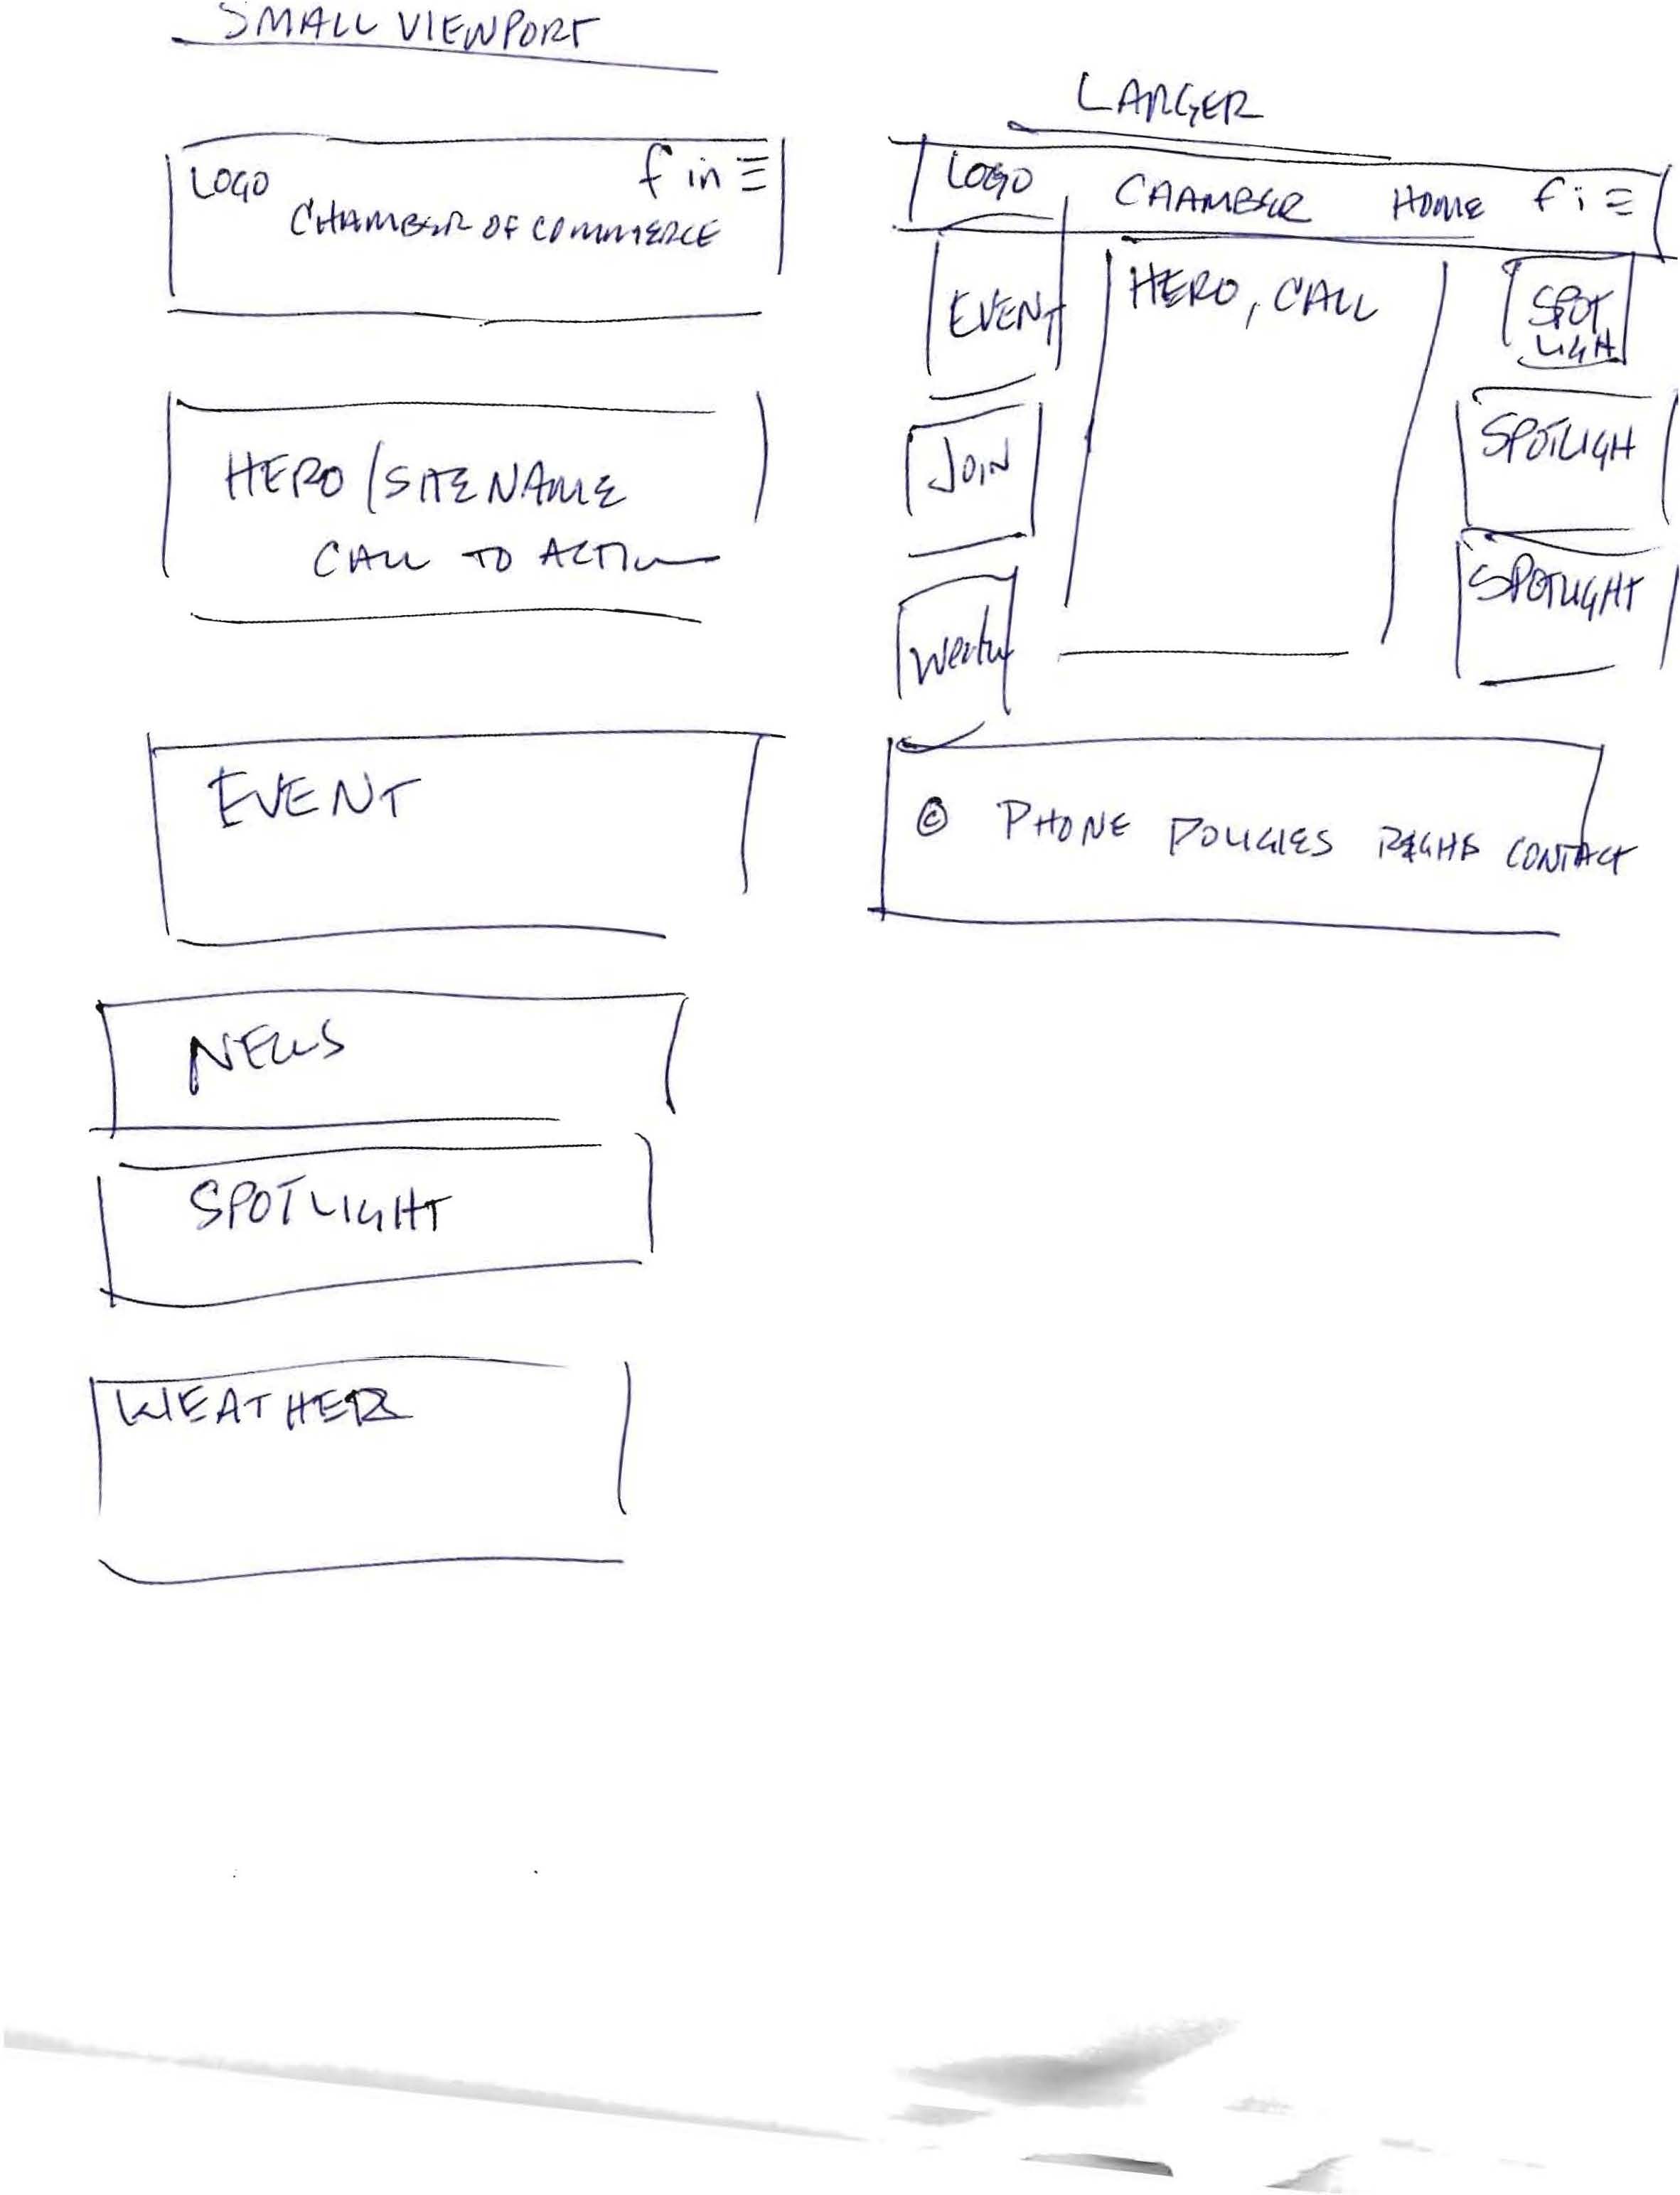 SMALL VIEWPORT
LOGO f in
CHAMBER OF COMMERCE
HERO / SITE NAME
CALL TO ACTION
EVENT
NEWS
SPOTLIGHT
WEATHER
LARGER
LOGO CHAMBER HOME f i
EVENT
HERO, CALL
SPOT
LIGH
JOIN
SPOTLIGH
SPOTLIGHT
© PHONE POLICIES RIGHTS CONTACT